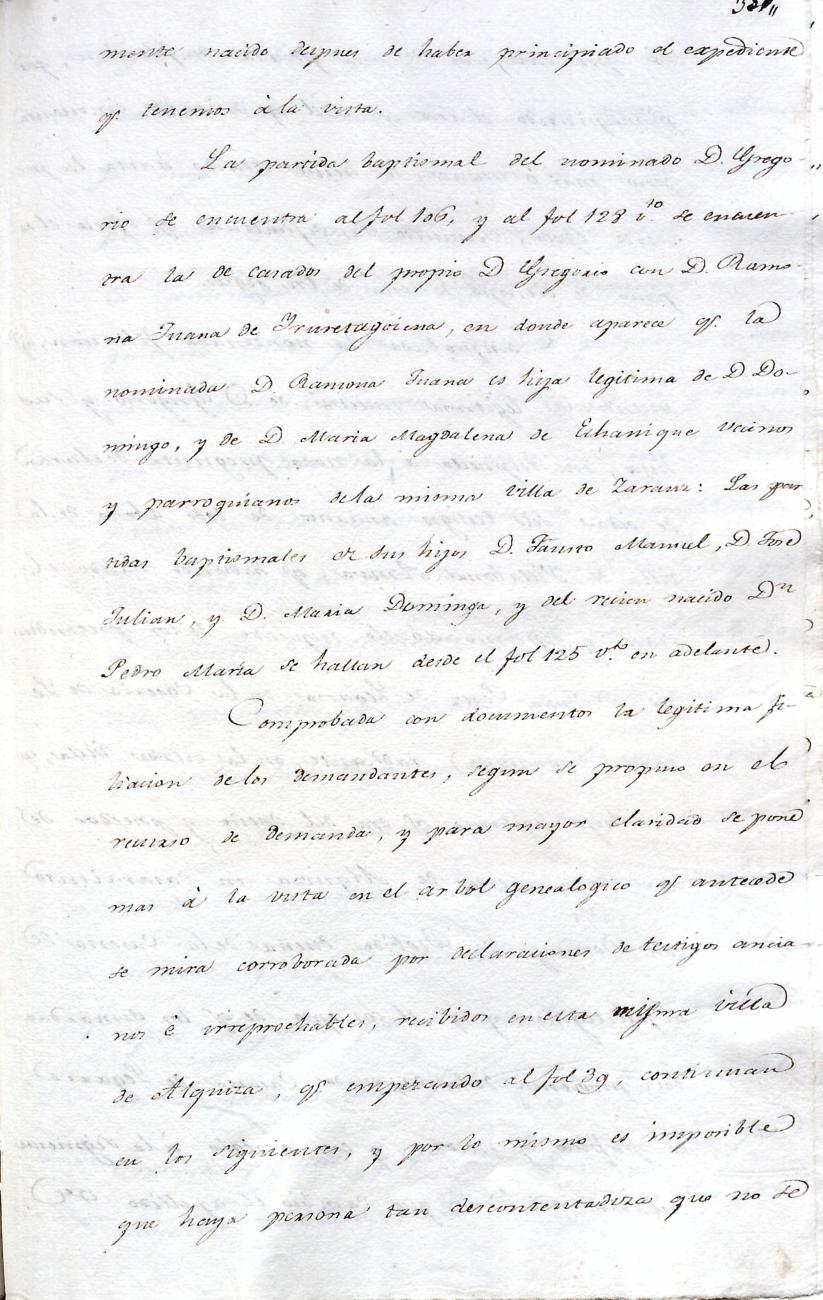 mente nacido despues de haber principiado el expediente
q.e tenemos à la vista.
La partida baptismal del nominado D. Grego-
rio se encuentra al fol 106, y al fol 128 v.to se encuen-
tra la de casados del propio D Gregorio con D. Ramo-
na Juana de Yruretagoiena, en donde aparece q.e la
nominada D Ramona Juana es hija legitima de D Do-
mingo, y de D Maria Magdalena de Echanique vecinos
y parroquianos de la misma villa de Zarauz: Las par
tidas baptismales de sus hijos D. Fausto Manuel, D. José
Julian, y D. Maria Dominga, y del recien nacido Dn
Pedro María se hallan desde el fol 125 v.to en adelante.
Comprobada con documentos la legitima fi-
liacion de los demandantes, segun se propuso en el
recurso de demanda, y para mayor claridad se pone
mas à la vista en el arbol genealogico q.e antecede
se mira corroborada por declaraciones de testigos ancia
nos è irreprochables, recibidos en esta misma villa
de Alquiza, q.e empezando al fol 39, continuan
en los siguientes, y por lo mismo es imposible
que haya persona tan descontentadiza que no se